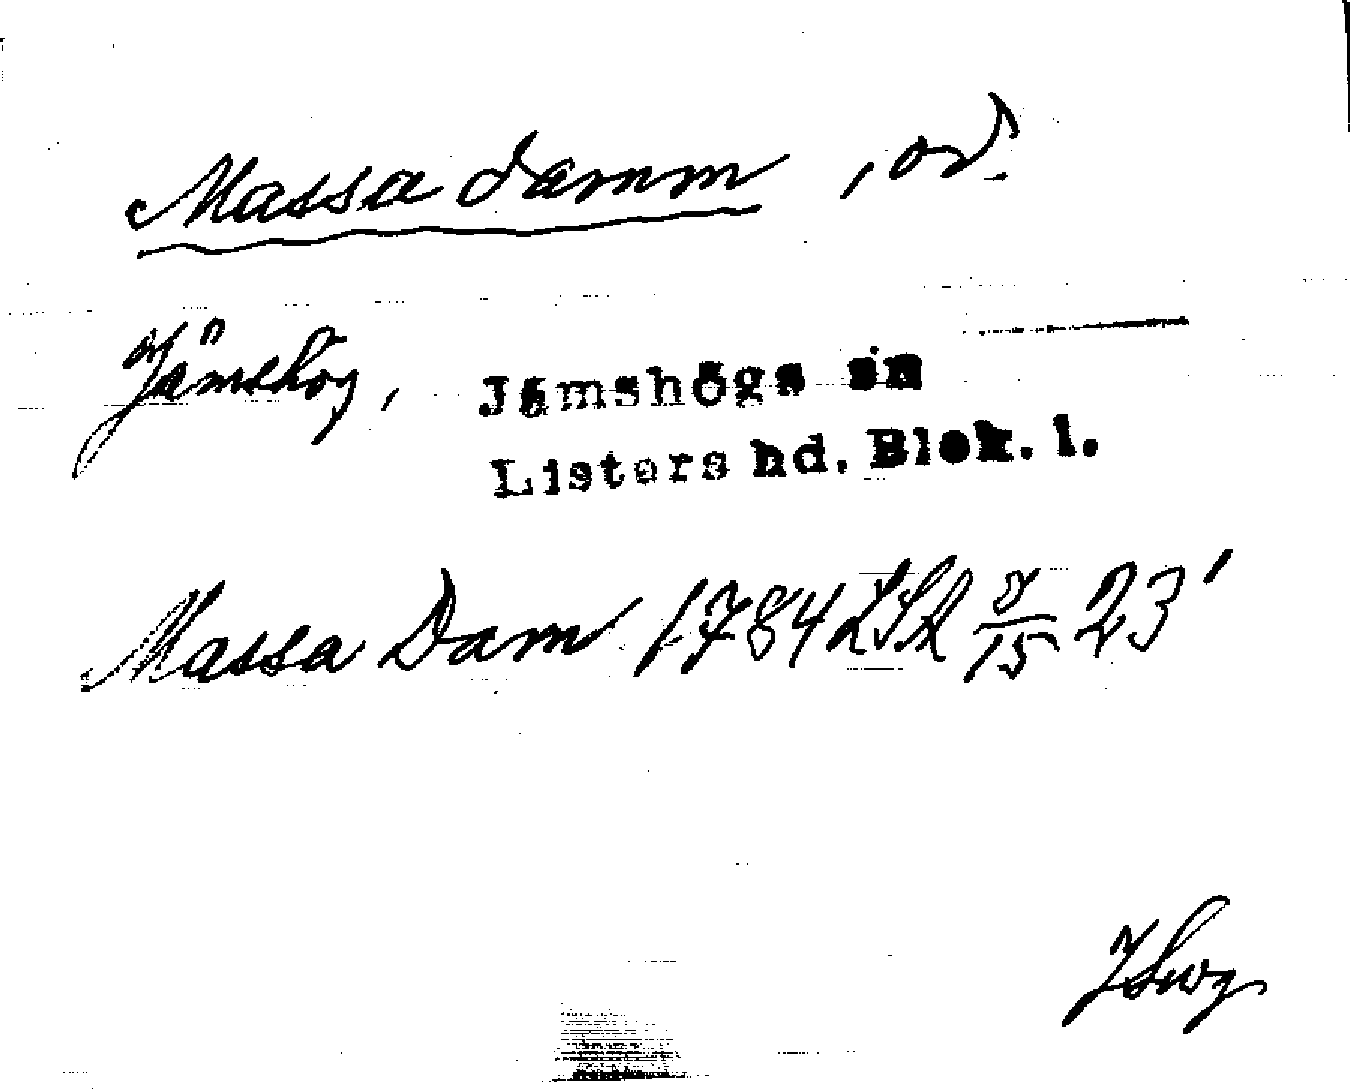 Massa damm, od.
Jämshög, Jämshögs sn
Listers hd. Blek. l.
Massa Dam 1784 LSA J/15 23'